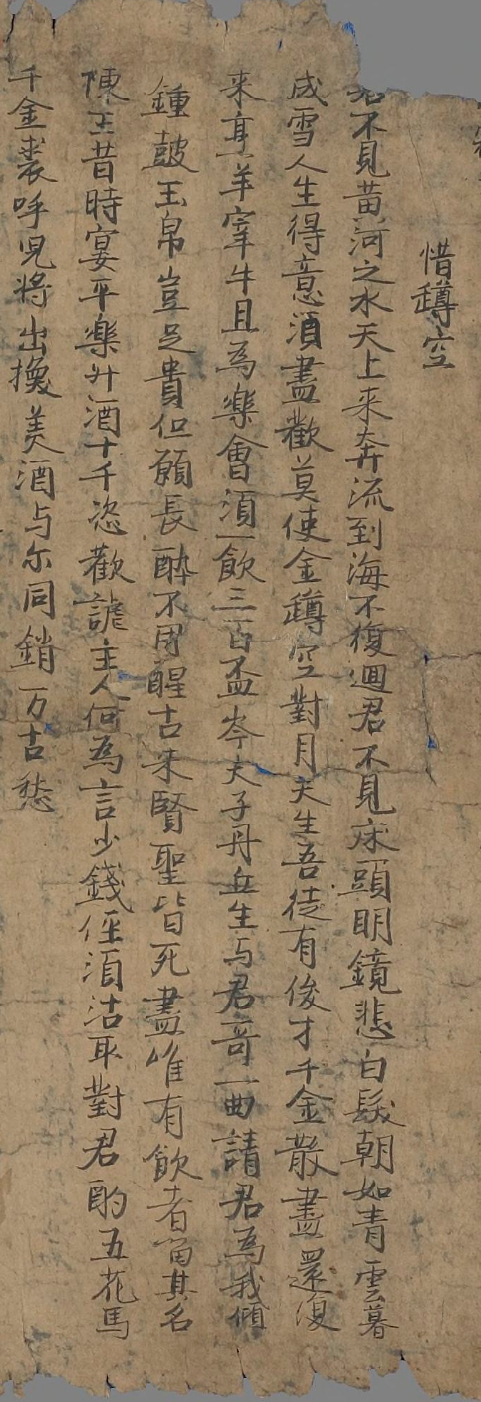 惜罇空
君不見黃河之水天上来奔流到海不復迴君不見床頭明鏡悲白髮朝如青雲暮
成雪人生得意須盡歡莫使金罇空對月天生吾徒有俊才千金散盡還復
来烹羊宰牛且為樂會須一飲三百盃岑夫子丹丘生与君哥一曲請君為我傾
鍾皷玉帛豈足貴但願長醉不用醒古来賢聖皆死盡唯有飲者留其名
陳王昔時宴平樂斗酒十千恣歡謔主人何為言少錢徑須沽取對君酌五花馬
千金裘呼児將出換美酒与尔同銷万古愁